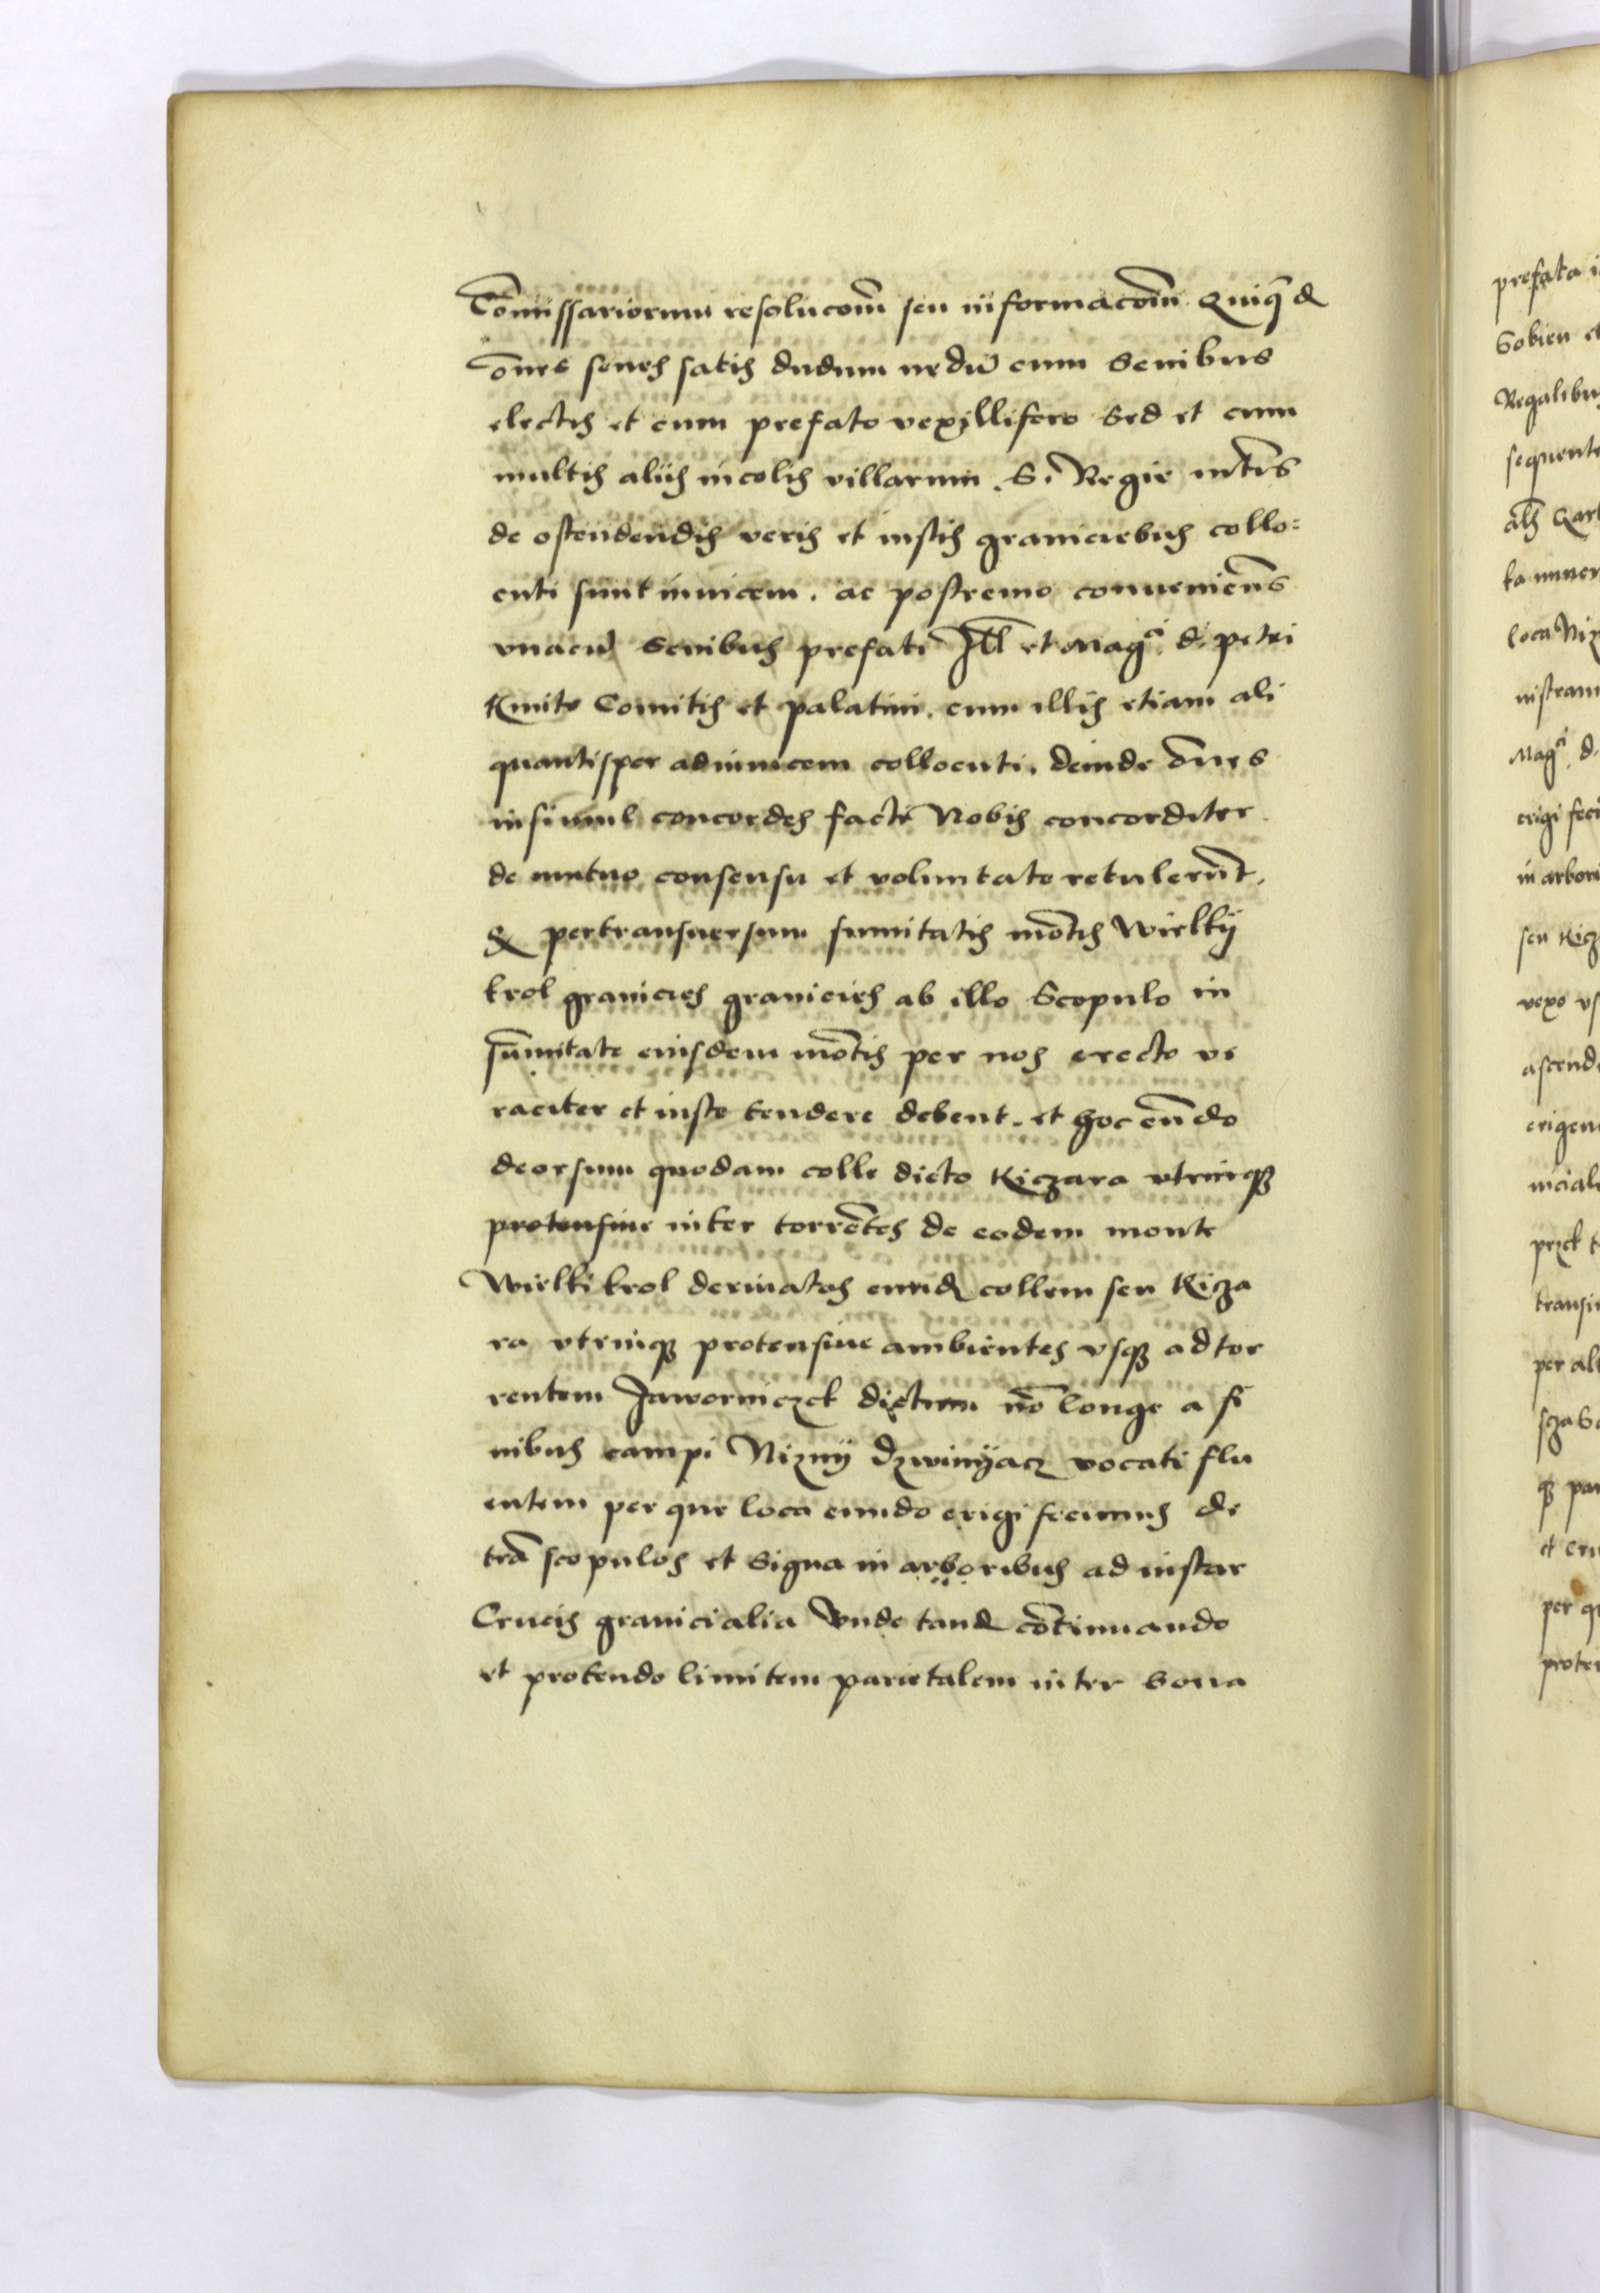 Com̄issariorum resolucom̄ seu informacom̄ Quiq̄ d
om̄es senes satis dudum nedū cum Senibus
electis et cum prefato vexillifero Sed et cum
multis aliis incolis villarum S. Regie mt̄tis
de ostendendis veris et iustis graniciebus collo:
cuti sunt inuicem. ac postremo conuenien̄s
vnacū Senibus prefati Ill et Mag^ci d. petri
Kmite Comitis et palatini. cum illis etiam ali
quantisper adinuicem collocuti. deinde om̄es
insimul concordes facti Nobis concorditer
de mutuo consensu et voluntate retulerūt.
q pertransuersum sumitatis mōtis Wielkij
krol granicies granicies ab illo Scopulo in
sum̄itate eiusdem mōtis per nos erecto ve
raciter et iuste tendere debent. et hoc eūdo
deorsum quodam colle dicto Kiczara vtrinqz
protensiue inter torrētes de eodem monte
Wielki krol deriuatos eund collem seu Kicza
ra vtrinqz protensiue ambientes vsqz ad tor
rentem Jaworniczek dictum nō longe a fi
nibus campi Nizny dzwinyacz vocati flu
entem per que loca eundo erigi fecimus de
trā scopulos et Signa in arboribus ad instar
Crucis granicialia Vnde tand cōtinuando
et protendo limitem parietalem inter bona
prefata
Regalibus
loca
Mag^ci d.
in arbori
seu Kicz
vexo
per al